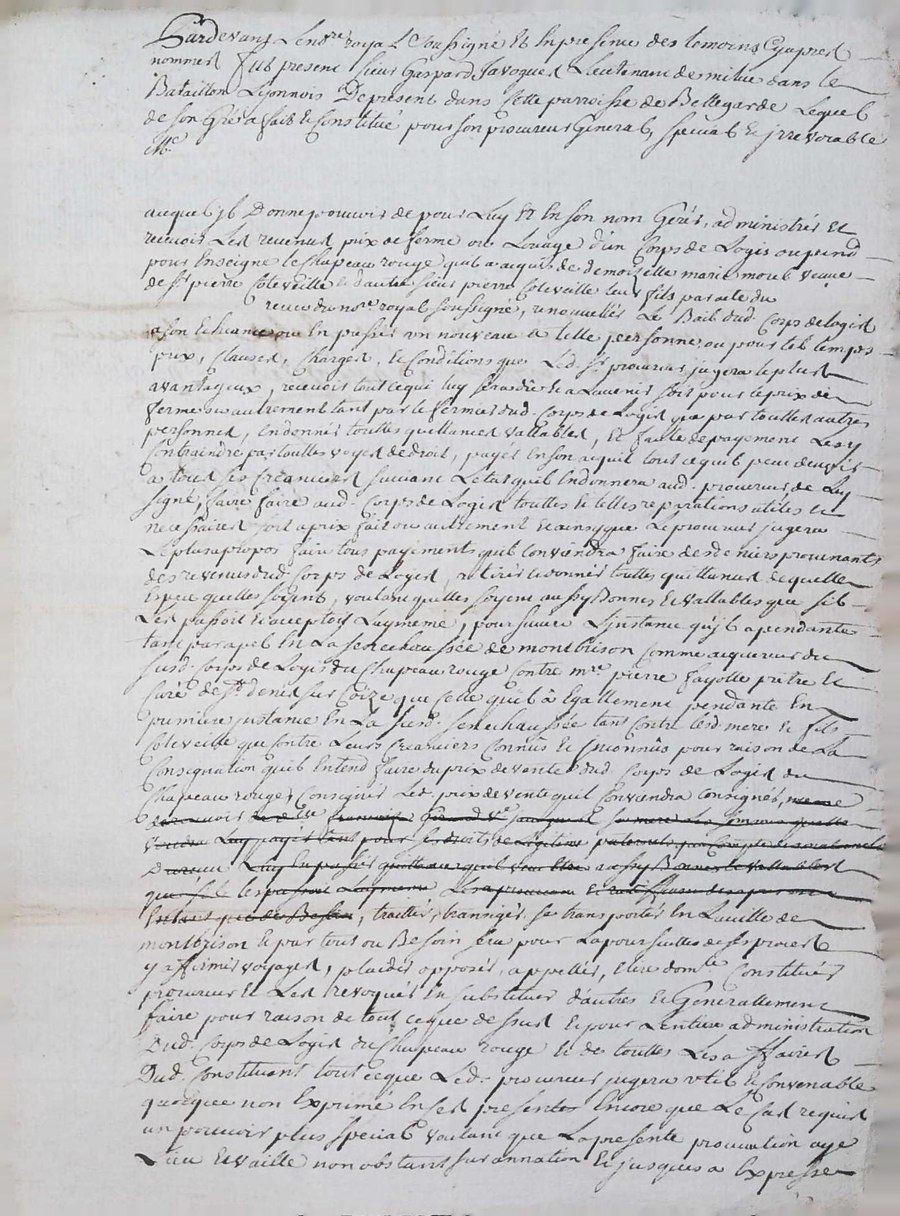 Pardevant Le no.re royal soussigné Et En presence des temoins Cyapres
nommes fut present sieur Gaspard Javogues Lieutenant de milice dans le
Bataillon Lyonnois De present dans Cette parroisse de Bellegarde Lequel
de son Gré a fait et Constitué pour son procureur General, special et jrrevocable
M.e
auquel jl Donne pouvoir de pour Luy Et En son nom Gerer, administrer Et
recevoir Les revenus, prix de ferme ou Louage d'un Corps de Logis ou pend
pour Enseigne le Chapeau rouge quil a acquis de demoiselle marie veuve
de Sr pierre Coteveille et dautre sieur pierre Coteveille leur fils par acte du
receu du no.re royal soussigné, renouveller Le Bail dud. Corps de logis
a son Echeance ou En passer un nouveau a telle personne, ou pour tel temps
prix, Clauses, Charges, et Conditions que Led. Sr. procureur jugera le plus
avantageux, recevoir tout cequi luy sera dû et a Lavenir soit pour le prix de
ferme ou autrement tant par le fermier dud. Corps de Logis que par touttes autres
personnes, En donner touttes quittances vallables, Et faute de payement Les y
Contraindre par touttes voyes de droit, payer En son acquit tout cequil peut devoir
a tous ses Creanciers suivant Letat quil En donnera aud. procureur, de Luy
signé, faire faire aud. Corps de Logis touttes et telles reparations utiles et
necessaires soit a prix fait ou autrement et ainsy que Le procureur jugera
Le plus a propos faire tous payements quil Conviendra faire des deniers provenants
des revenus dud. Corps de Logis, retirer et donner touttes quittances de quelle
Espece quelles soyent, voulant quelles soyent aussy Bonnes et vallables que sil
Les passoit et acceptoit Luymeme, poursuivre Linstance quil a pendante
tant par apel En La senechaussée de montbrison Comme acquereur du
susd. Corps de Logis du Chapeau rouge Contre m.re pierre fayolle prêtre Et
Curé de St. denis sur Coize que Celle quil a Egallement pendante En
premiere jnstance En La senechaussée tant Contre lesd. mere et fils
Coteveille que Contre Leurs Creanciers Connus Et jnconnûs pour raison de La
Consignation quil Entend faire du prix de vente dud. Corps de Logis du
Chapeau rouge, Consigner Led. prix de vente quil Conviendra Consigner,
traitter, transiger, se transporter En La ville de
montbrison et par tout ou Besoin sera pour La poursuitte de ses proces
y affirmer voyages, plaider opposer, appeller, Elire dom.le Constituer
procureur Et Les revoquer En substituer d'autres et Generallement
faire pour raison de tout ceque dessus et pour Lentiere administration
Dud. Corps de Logis du Chapeau rouge Et des touttes Les affaires
Dud. Constituant tout ceque Led. procureur jugera utile et Convenable
quoyque non Exprimé En ses presentes Encore que Le Cas requis
un pouvoir plus special voulant que La presente procuration aye
Lieu Et vaille non obstant surannation Et jusques a Expresse